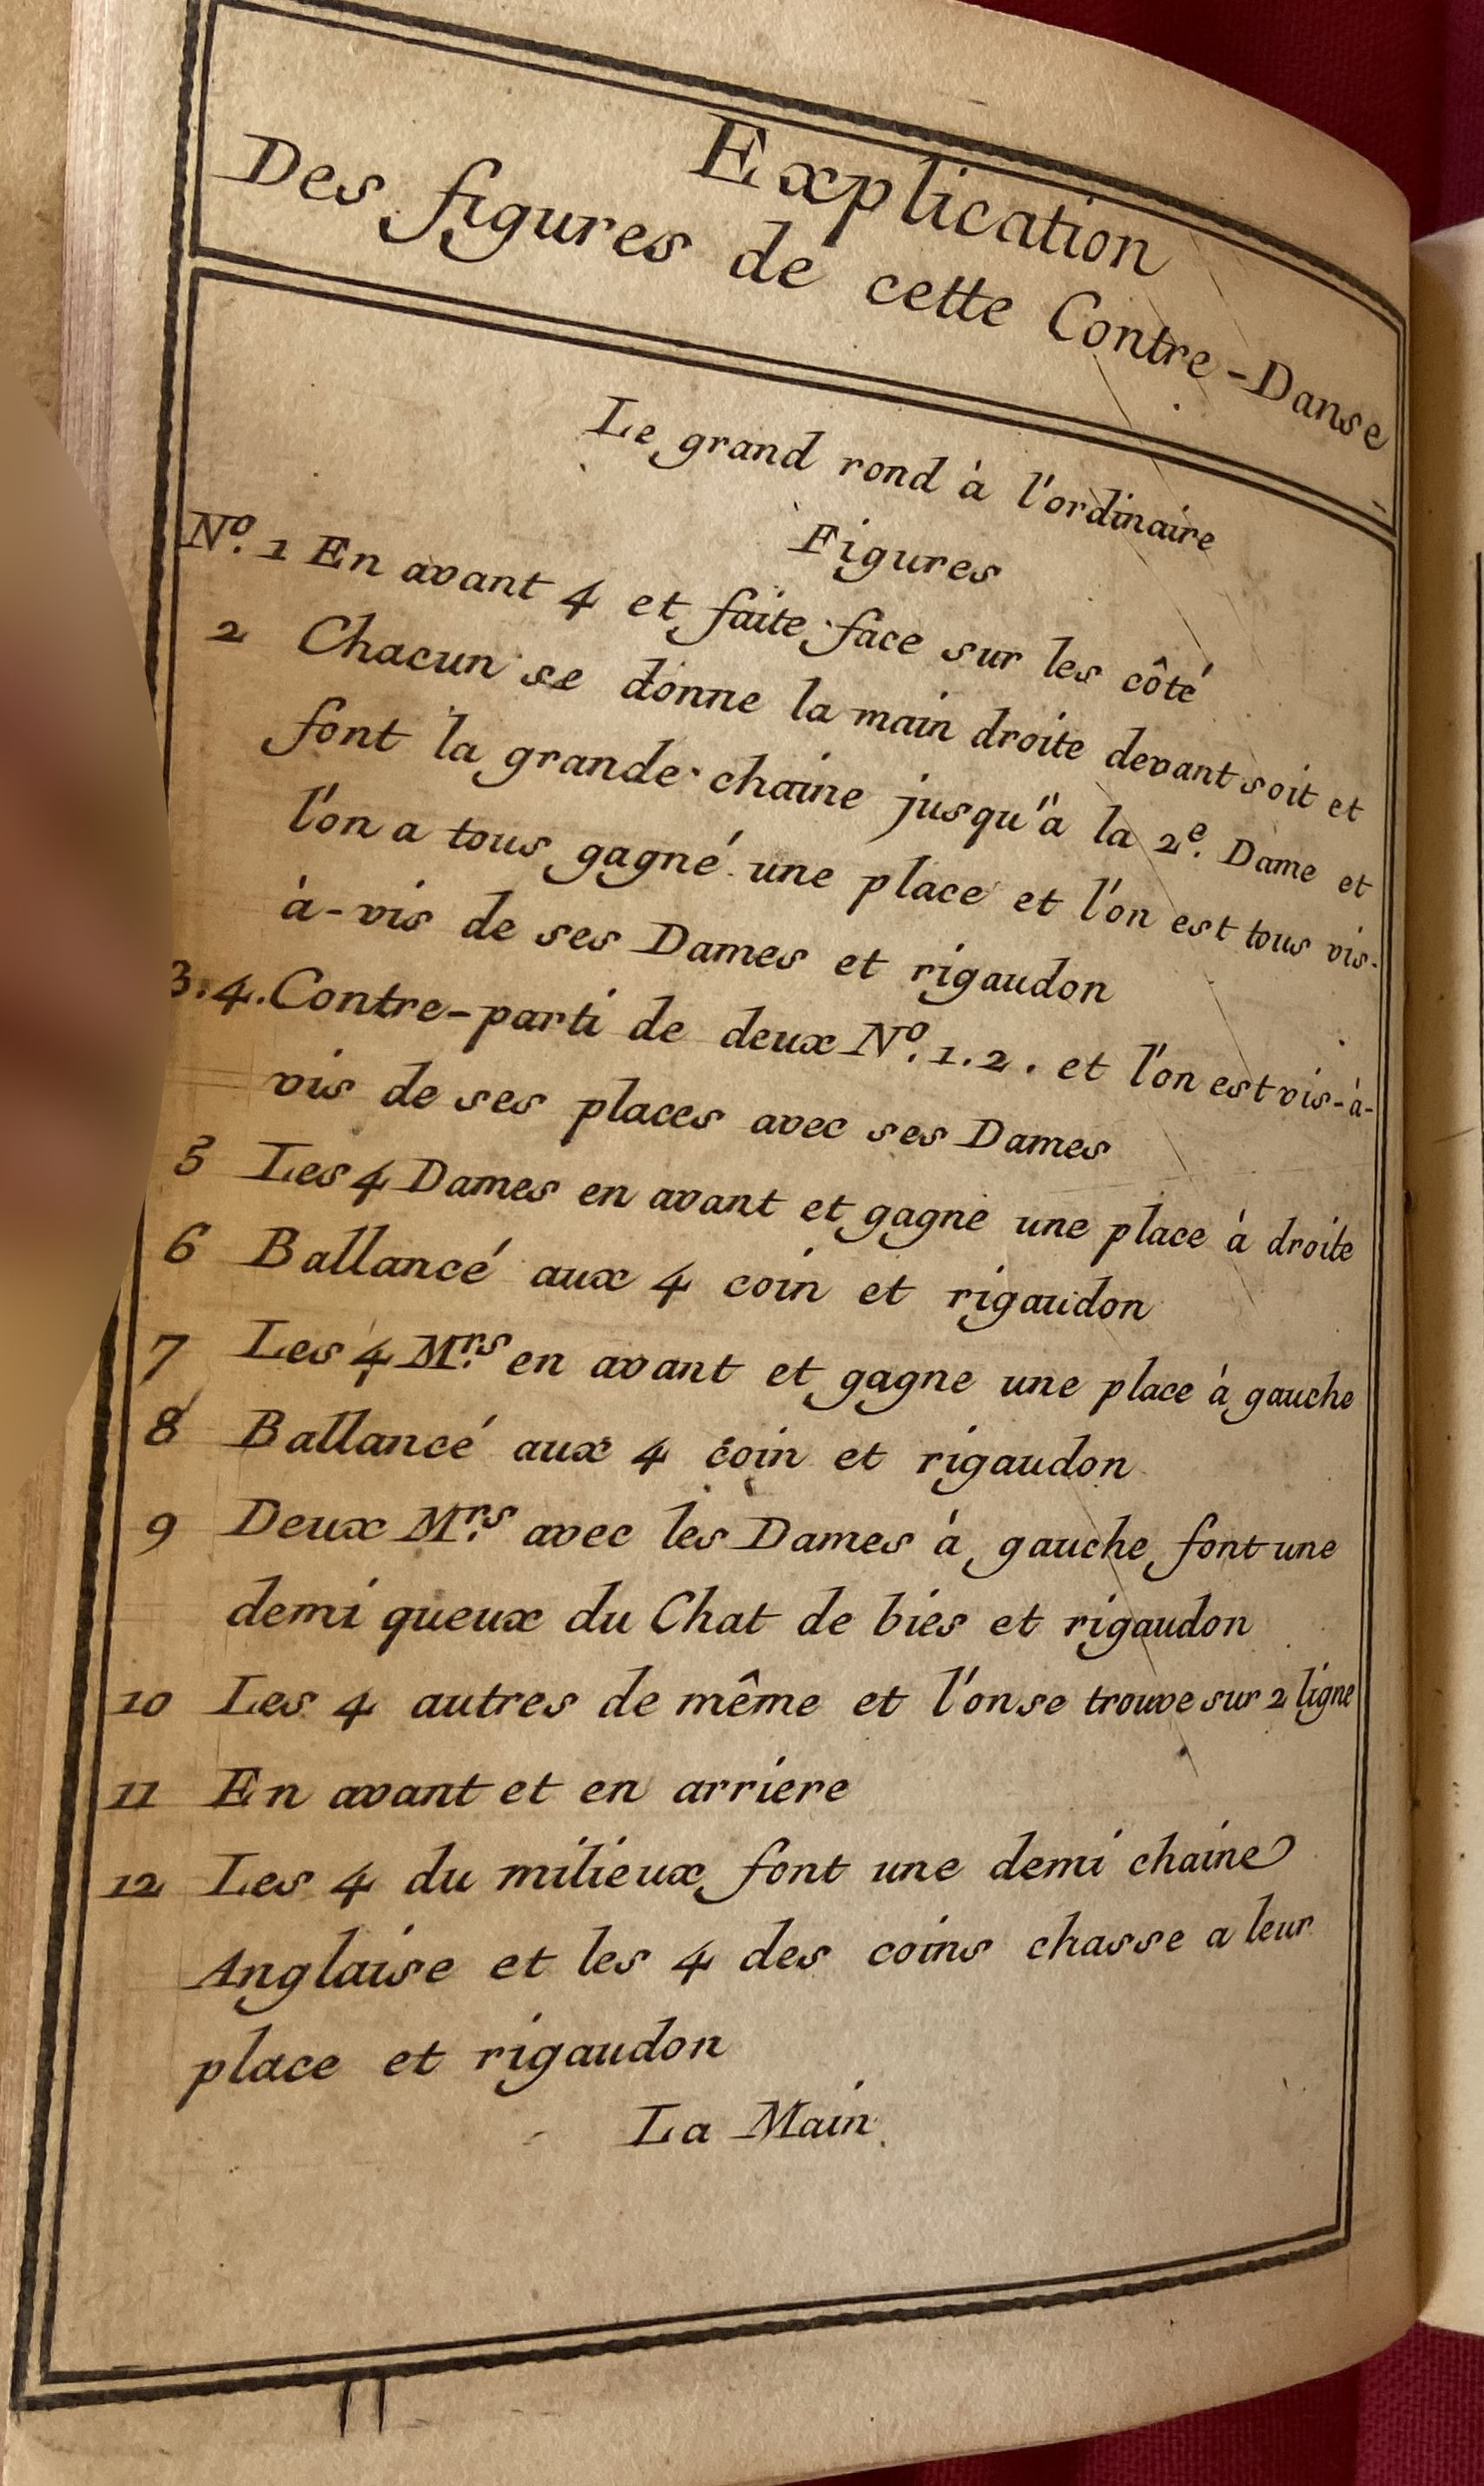 Explication
Des figures de cette Contre-Danse
Le grand rond à l'ordinaire
Figures
N.º 1 En avant 4 et faite face sur les côté
2 Chacun se donne la main droite devant soit et
font la grande chaine jusqu'à la 2.e Dame et
l'on a tous gagné une place et l'on est tous vis-
à-vis de ses Dames et rigaudon
3.4. Contre-parti de deux N.º 1.2. et l'on est vis-à-
vis de ses places avec ses Dames
5 Les 4 Dames en avant et gagne une place à droite
6 Ballancé aux 4 coin et rigaudon
7 Les 4 M.rs en avant et gagne une place à gauche
8 Ballancé aux 4 coin et rigaudon
9 Deux M.rs avec les Dames à gauche font une
demi queux du Chat de biés et rigaudon
10 Les 4 autres de même et l'on se trouve sur 2 ligne
11 En avant et en arriere
12 Les 4 du milieux font une demi chaine
Anglaise et les 4 des coins chasse a leur
place et rigaudon
La Main